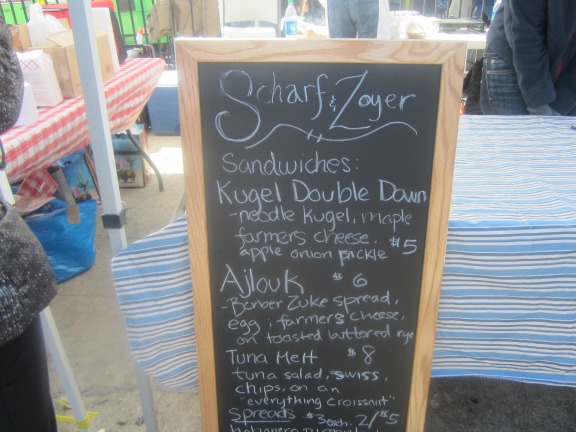 Scharf & Zoyer
Sandwiches:
Kugel Double Down
-noodle kugel, maple
farmers cheese,
apple onion pickle $5
Ajlouk $6
-Berber Zuke spread,
egg, farmers cheese,
on toasted buttered rye
Tuna Melt $8
tuna salad, swiss,
chips, on an
"everything croissant"
Spreads $3 each. 2/$5